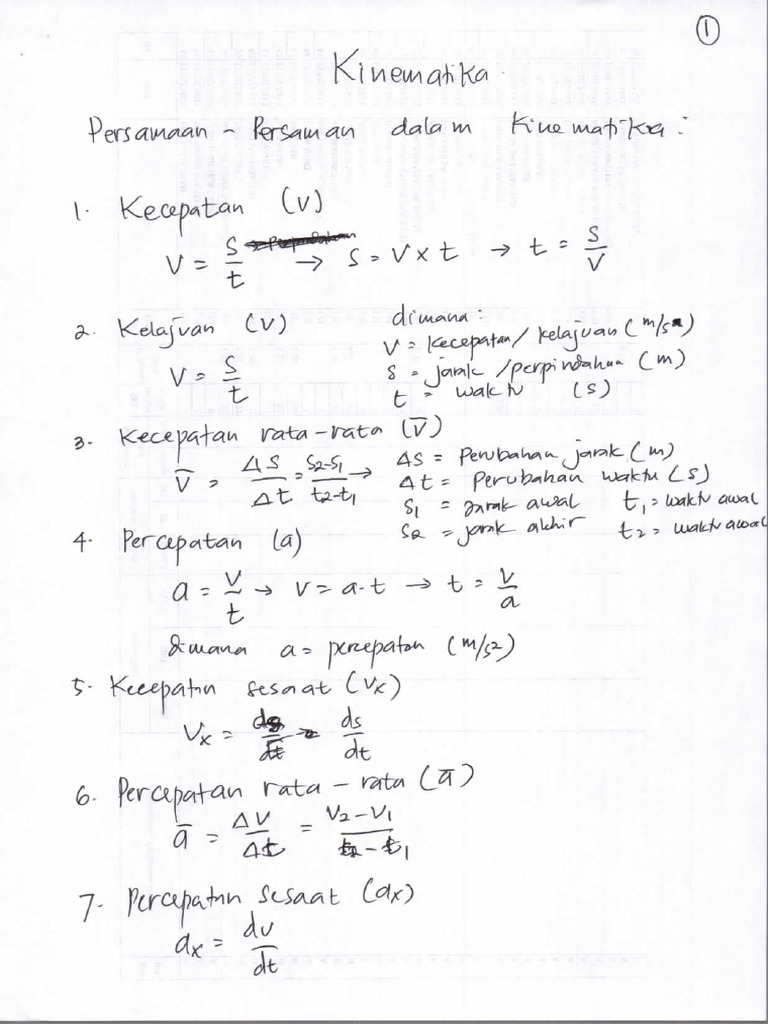 1
Kinematika
Persamaan - Persaman dalam Kinematika :
1. Kecepatan (V)
V = S/t → S = V x t → t = S/V
2. Kelajuan (V)
V = S/t
dimana :
V = Kecepatan / kelajuan (m/s)
S = jarak / perpindahan (m)
t = waktu (s)
3. Kecepatan rata-rata (V̅)
V̅ = ΔS/Δt = S2-S1/t2-t1 →
ΔS = Perubahan jarak (m)
Δt = Perubahan waktu (s)
S1 = jarak awal t1 = waktu awal
S2 = jarak akhir t2 = waktu awal
4. Percepatan (a)
a = V/t → V = a.t → t = V/a
dimana a = percepatan (m/s2)
5. Kecepatan sesaat (Vx)
Vx = ds/dt
6. Percepatan rata-rata (a̅)
a̅ = ΔV/Δt = V2-V1/t2-t1
7. Percepatan sesaat (ax)
ax = dv/dt